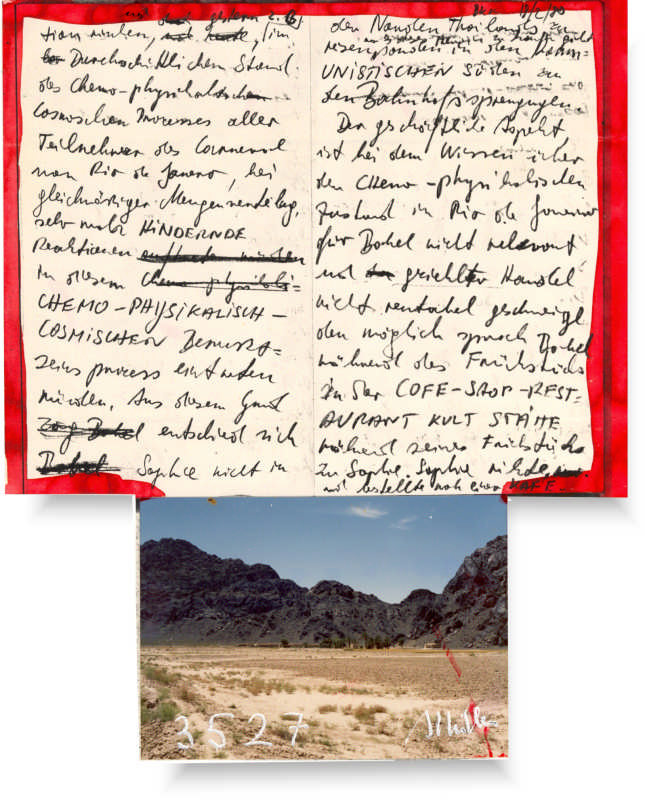 tion würden,
Durchsichtlichen Stand
des Chemo-physikalischen
Cosmischen Processes aller
Teilnehmer des Carneval
von Rio de Janero, bei
gleichwärtiger
sehr wohl HINDERNDE
Reaktionen auftreten würden
in diesem Chemo-physikali=
CHEMO-PHYSIKALISCH-
COSMISCHEN Bewusst=
seins process eintreten
würden. Aus diesem Grund
zog Bobel entschied sich
Bobel Sophie nicht in
den Norden Thailands zu
in den KOMM=
UNISTISCHEN Süden zu
den Bahnhofssprengungen
Der geschäftliche Aspekt
ist bei dem Wissen über
den CHEMO-physikalischen
Zustand in Rio de Janeiro
für Bobel nicht relevant
und gezielter Handel
nicht rentabel geschweige
den möglich sprach Bobel
während des Frühstücks
in der COFE-SHOP-REST=
AURANT KULT STÄTTE
während seines Frühstücks
zu Sophie. Sophie nickte
und bestellte noch einen KAFE
3527